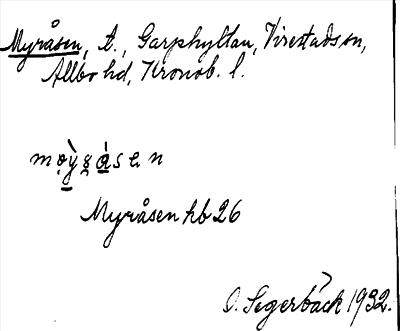 Myråsen, t., Garphyltan, Virestads sn,
Allbo hd, Kronob. l.
Myråsen hb 26
O. Segerbäck 1932.